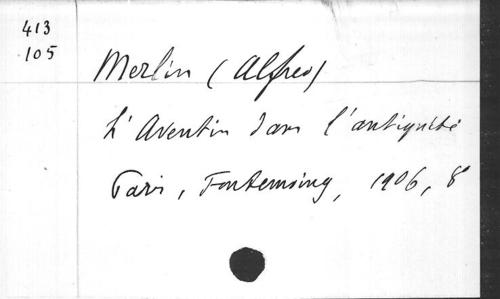 413
105
Merlin (Alfred)
L'Aventin dans l'antiquité
Paris, Fontemoing, 1906, 8°